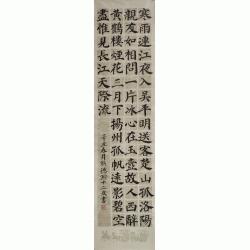 寒雨連江夜入吳平明送客楚山孤洛陽
親友如相問一片冰心在玉壺故人西辭
黃鶴樓煙花三月下揚州孤帆遠影碧空
盡惟見長江天際流
春月 十二歲書